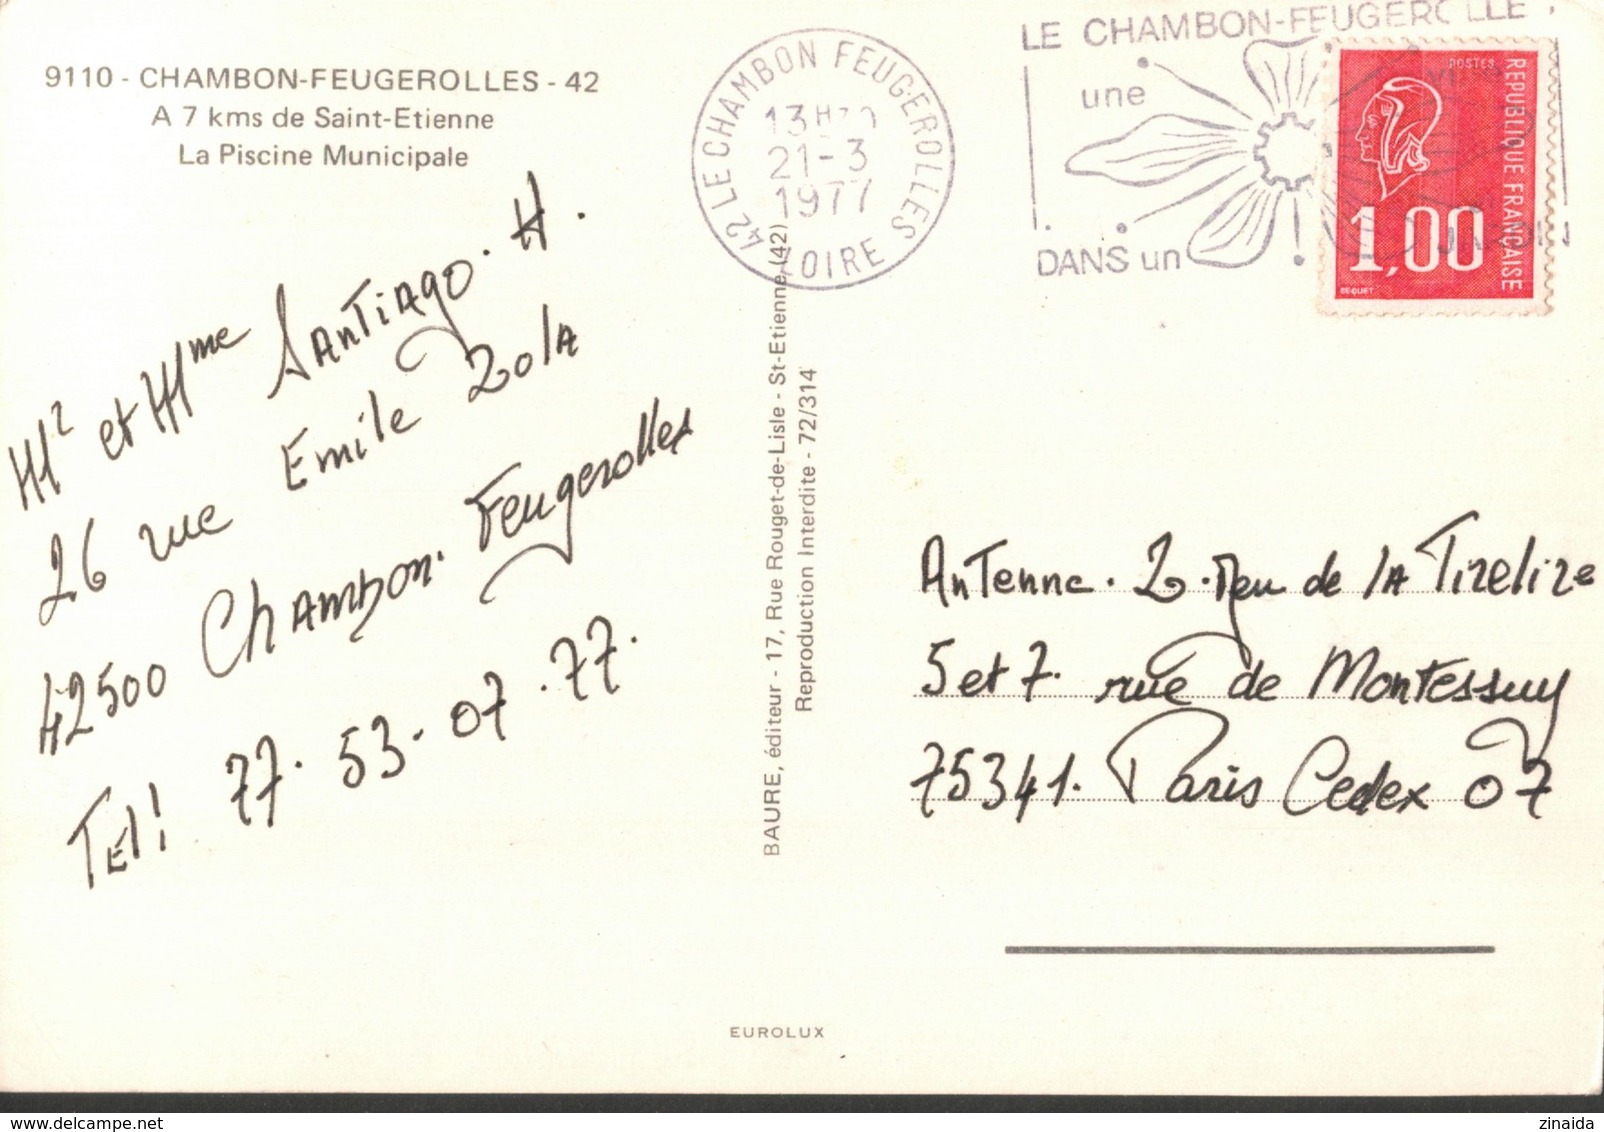 9110 - CHAMBON-FEUGEROLLES - 42
A 7 kms de Saint-Etienne
La Piscine Municipale
42 LE CHAMBON FEUGEROLLES
13H30
21-3
1977
LOIRE
LE CHAMBON-FEUGEROLLES
une
DANS un
POSTES
REPUBLIQUE FRANÇAISE
1,00
BEQUET
Mr et Mme Santiago. H.
26 rue Emile Zola
42500 Chambon. Feugerolles
Tél! 77. 53. 07. 77.
BAURE, éditeur - 17, Rue Rouget-de-Lisle - St-Etienne (42)
Reproduction Interdite - 72/314
Antenne. 2. Jeu de la Tirelire
5 et 7. rue de Montessuy
75341. Paris Cedex 07
EUROLUX
www.delcampe.net
zinaida